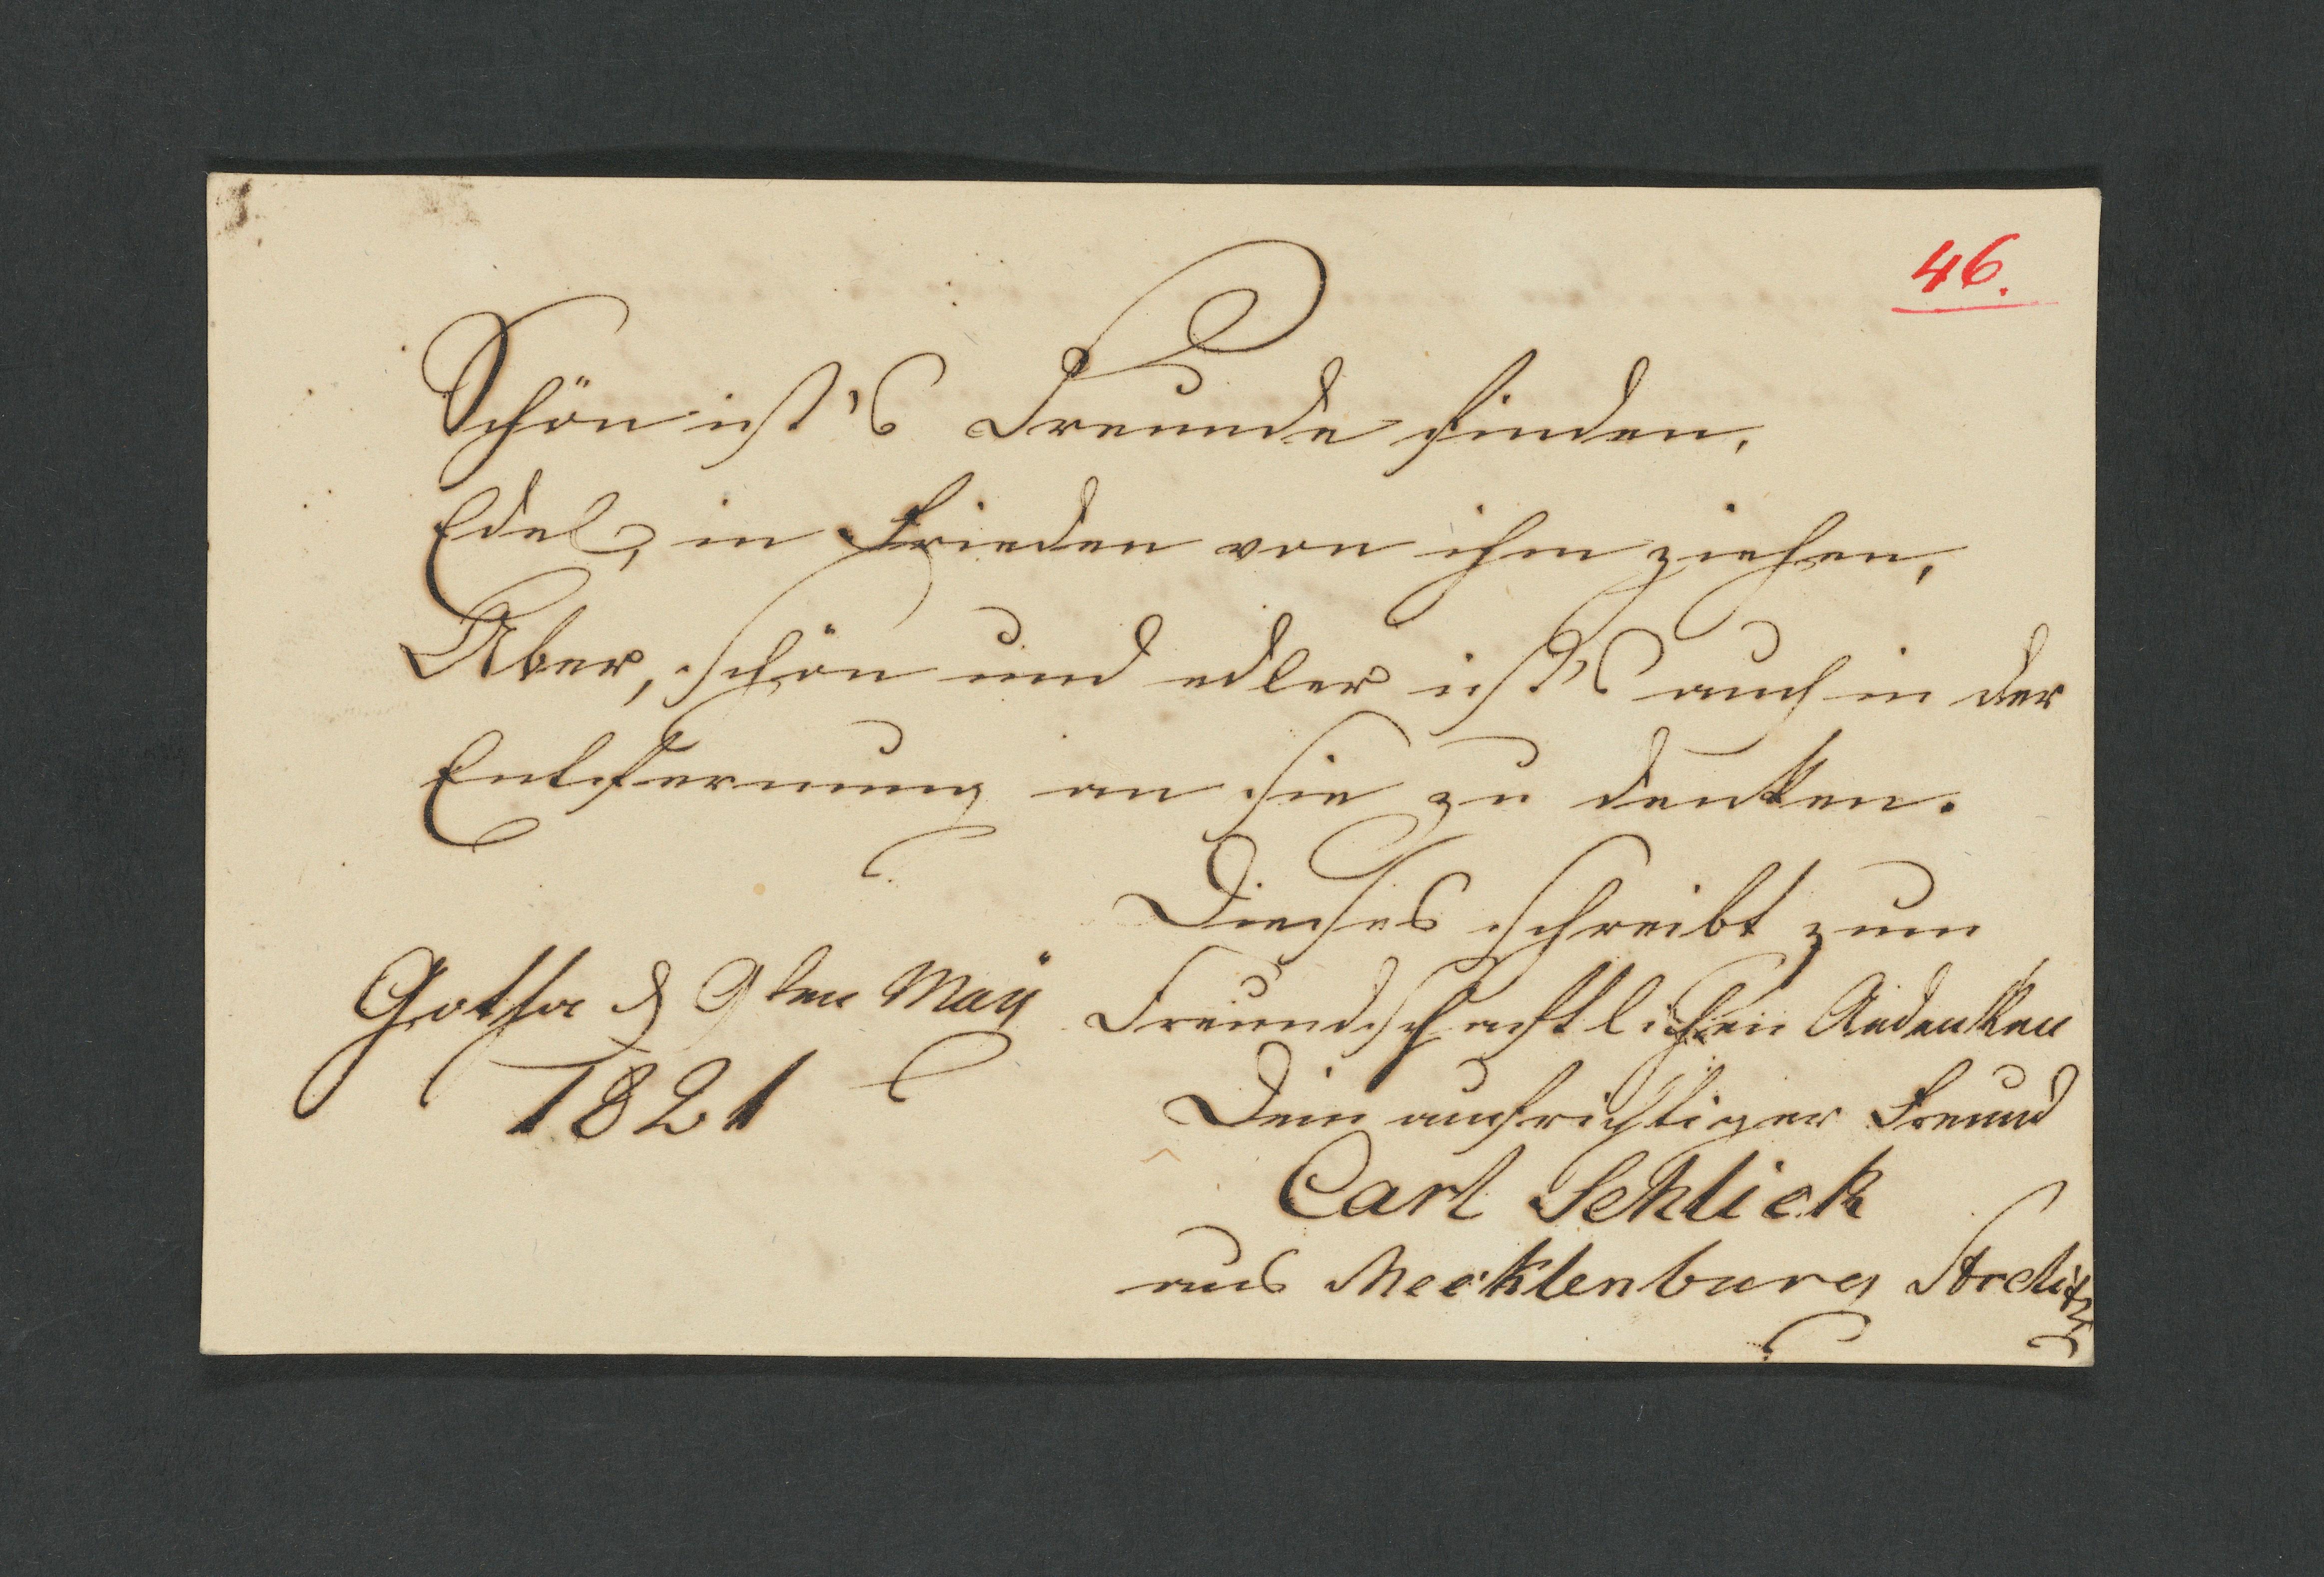 46.
Schön ist's Freunde finden,
Edel, in Frieden von ihm ziehen,
Aber, schön und edler ist's auch in der
Entfernung an sie zu denken.
Dieses schreibt zum
Gotha d 9ten Maÿ Freundschaftlichen Andenken
1821 Dein aufrichtiger Freund
Carl Schlick
aus Mecklenburg Strelitz